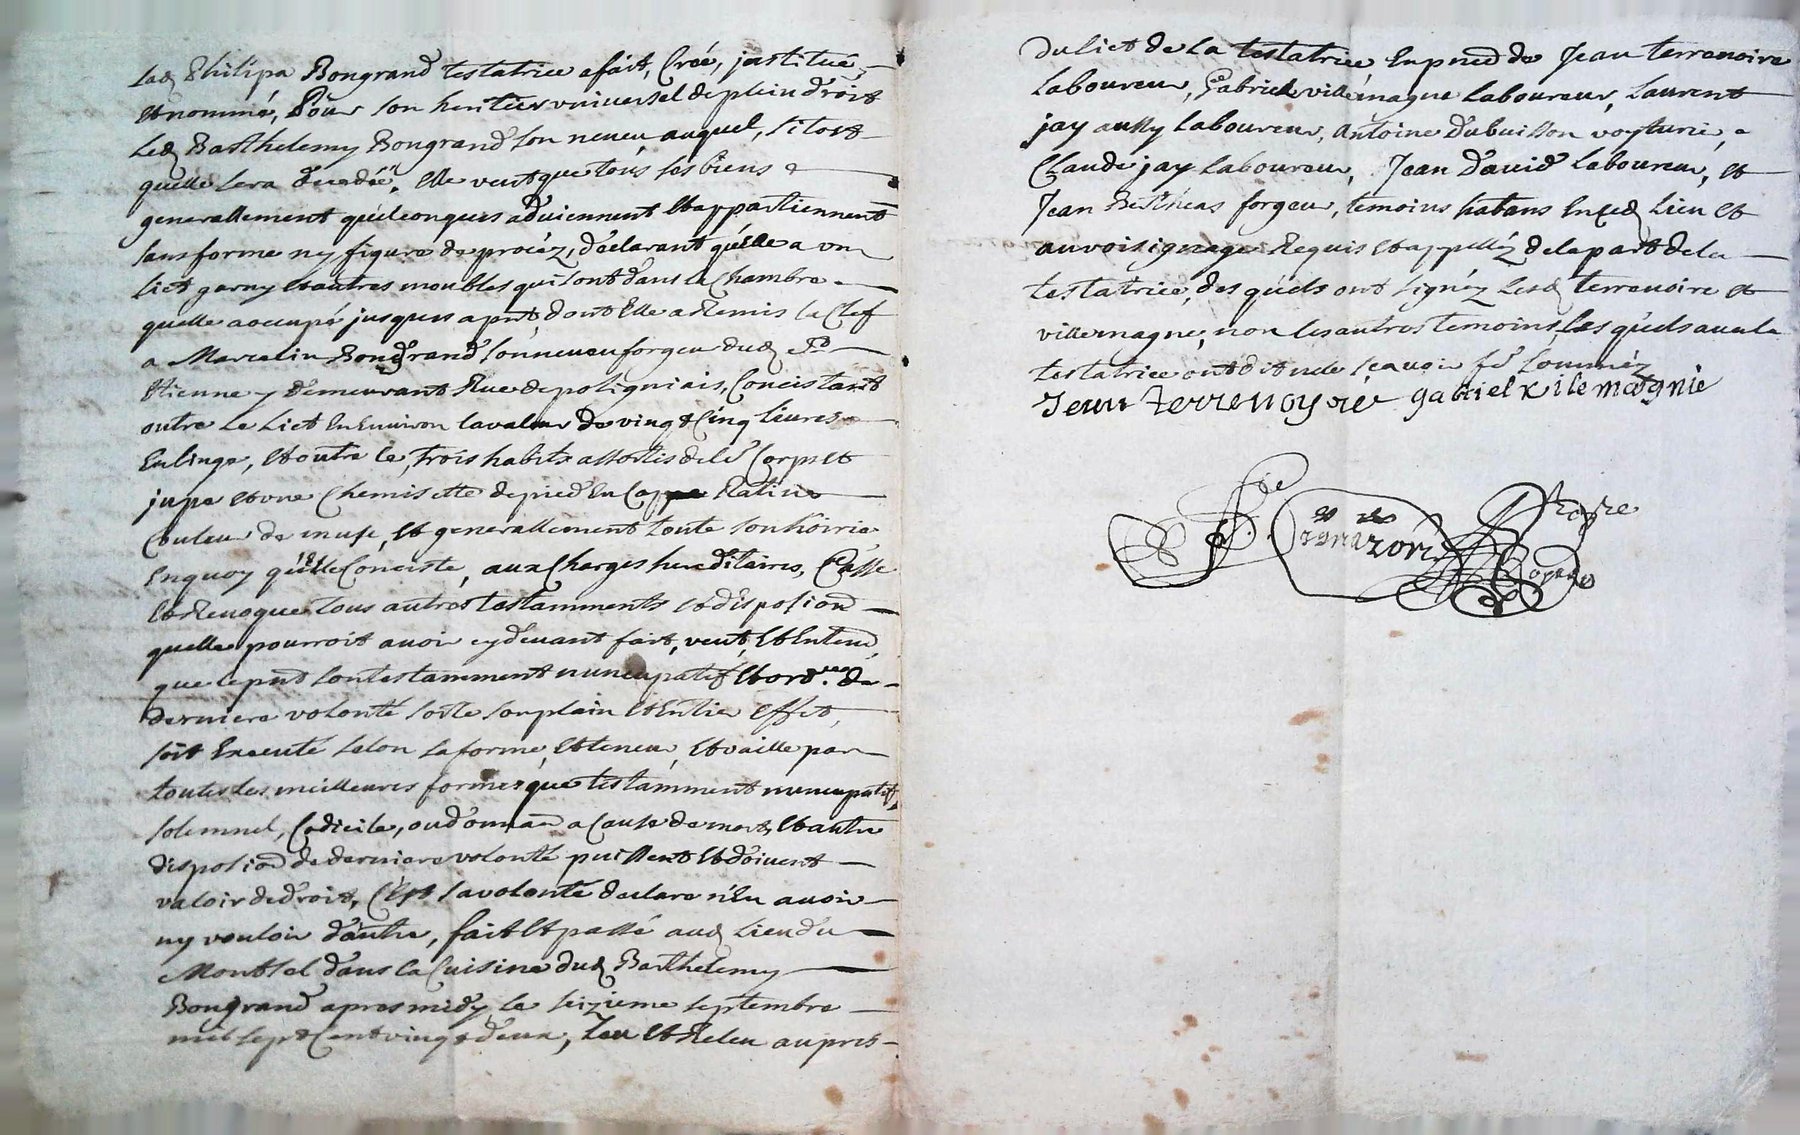 lad Philipa Bongrand testatrice a fait, Créé, jnstitué,
et nommé, Pour son heritier vniversel de plein droit
Led Barthelemy Bongrand son neveu, auquel, sitost
quelle sera décédéé, Elle veut que tous ses biens &
generallement quelconques aduiennent et appartiennent
sans forme ny figure de procéz, déclarant quelle a vn
lict garny et autres meubles qui sont dans la Chambre
quelle a occupé jusques a pnt, dont Elle a Remis la Clef
a Marcelin Bongrand son neveu forgeu dud St
Etienne y demeurant Rue de polignais, Concistant
outre Le Lict En Enuiron la valeur de vingt Cinq liures
En linge, et outre ce, trois habits assortis de Corps et
jupe et vne Chemisette de pied En Cappe Ratine
Couleur de muse, et generallement toute son hoirie
En quoy quelle Conciste, aux Charges hereditaires, Casse
et Reuoque tous autres testamments et disposion
quelle pourroit auoir cy deuant fait, veut, Et Entend
que le pnt son testamment nuncupatif et ord.nce de
derniere volonté sorte son plain et Entier effet,
soit Executé selon sa forme, et teneur, et vaille par
toutes les meilleures formes que testamment nuncupatif,
solemnel, Codicile, ou donnaon a Cause de mort, et autre
disposion de derniere volonté puissent et doiuent
valoir de droit, C'est sa volonté declare n'En auoir
ny vouloir d'autre, fait et passé aud Lieu du
Montsel dans la Cuisine dud Barthelemy
Bongrand apres midy le seizieme septembre
mil sept Cent vingt deux, Leu et Releu aupres
du lict de La testatrice En pnce de Jean terrenoire
Laboureur, Gabriel villemagne Laboureur, Laurent
jay aussy Laboureur, Antoine dubuisson voyturié,
Claude jay Laboureur, Jean david Laboureur, et
Jean Betheas forgeu, temoins habans En Ced Lieu et
au voisignage Requis et appelléz de la part de la
testatrice, des quels ont signéz Lesd terrenoire et
villemagne, non les autres temoins, Les quels auec la
testatrice ont dit ne sçauoir fe somméz
Jean terrenoyre gabriel vilemagnie